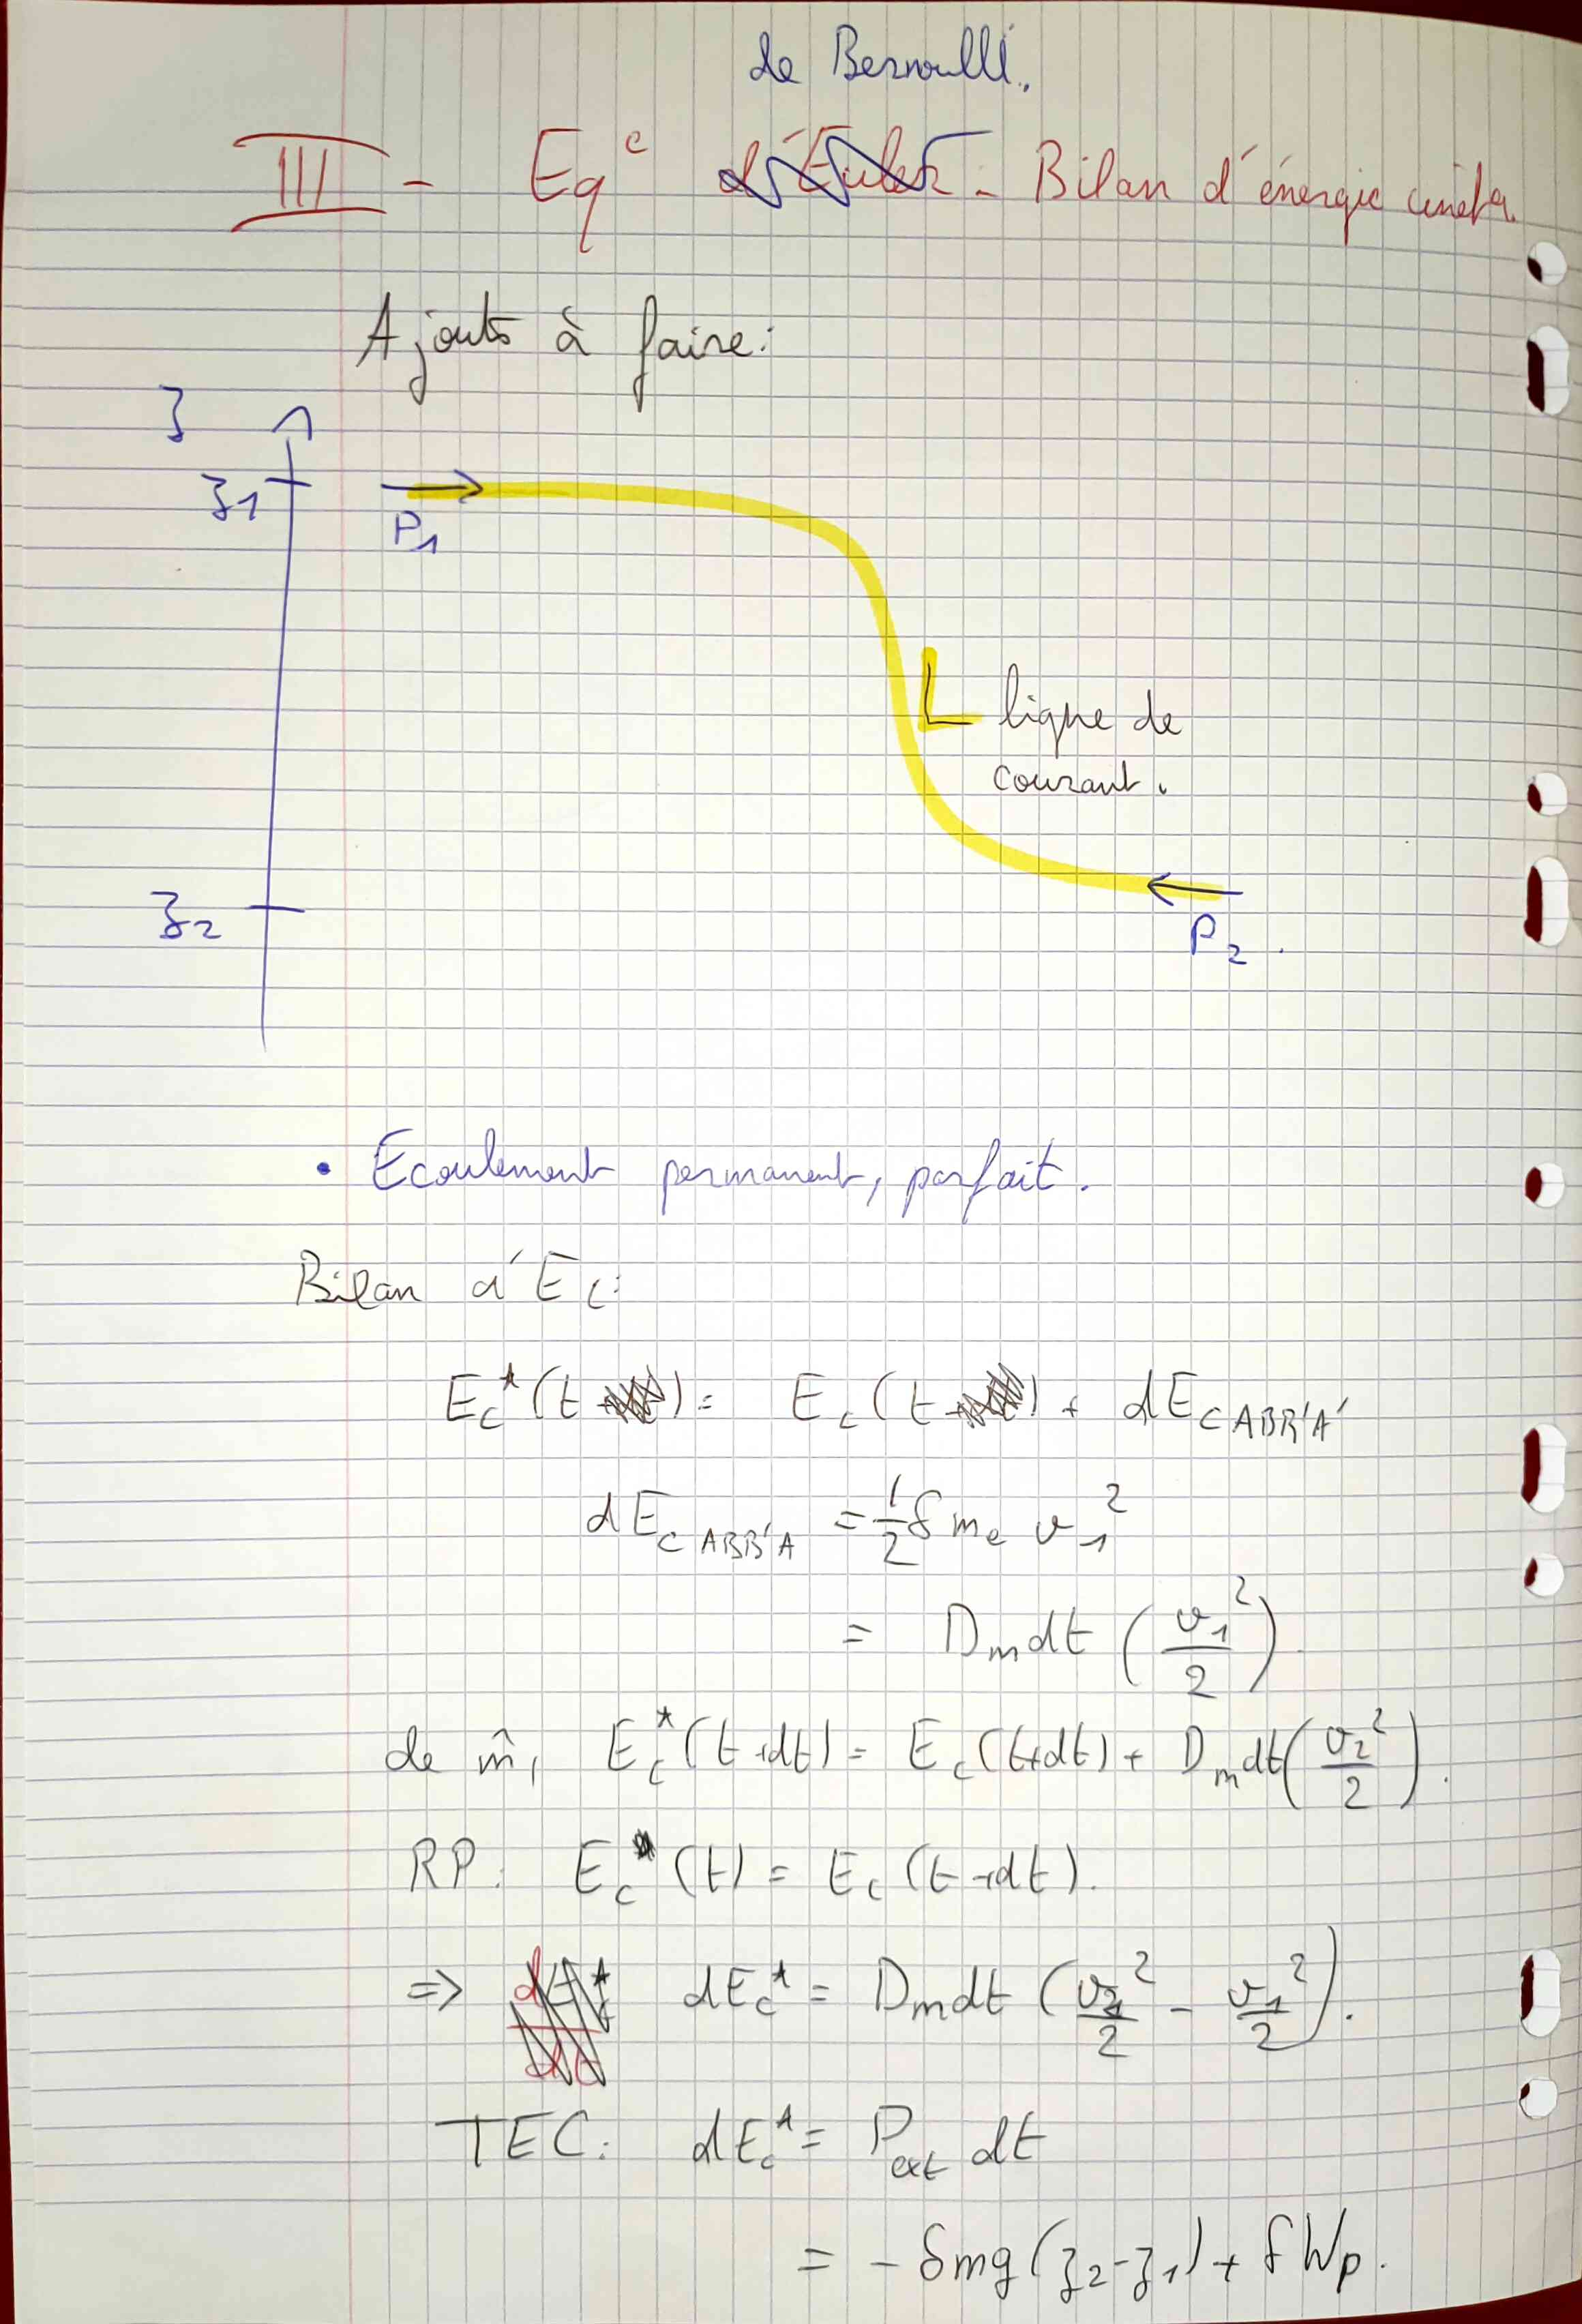 de Bernoulli.
III - Eq^e d'Euler - Bilan d'énergie cinétq.
Ajouts à faire:
z
z1
P1
ligne de
courant.
z2
P2.
• Ecoulement permanent, parfait.
Bilan d'Ec:
Ec*(t) = Ec(t) + dEc ABB'A'
dEc ABB'A = 1/2 δme v1²
= Dm dt (v1²/2).
de m̂, Ec*(t+dt) = Ec(t+dt) + Dm dt (v2²/2).
RP: Ec*(t) = Ec(t+dt).
=> dEc* = Dm dt (v2²/2 - v1²/2).
TEC: dEc* = Pext dt
= - δmg(z2-z1) + δWp.